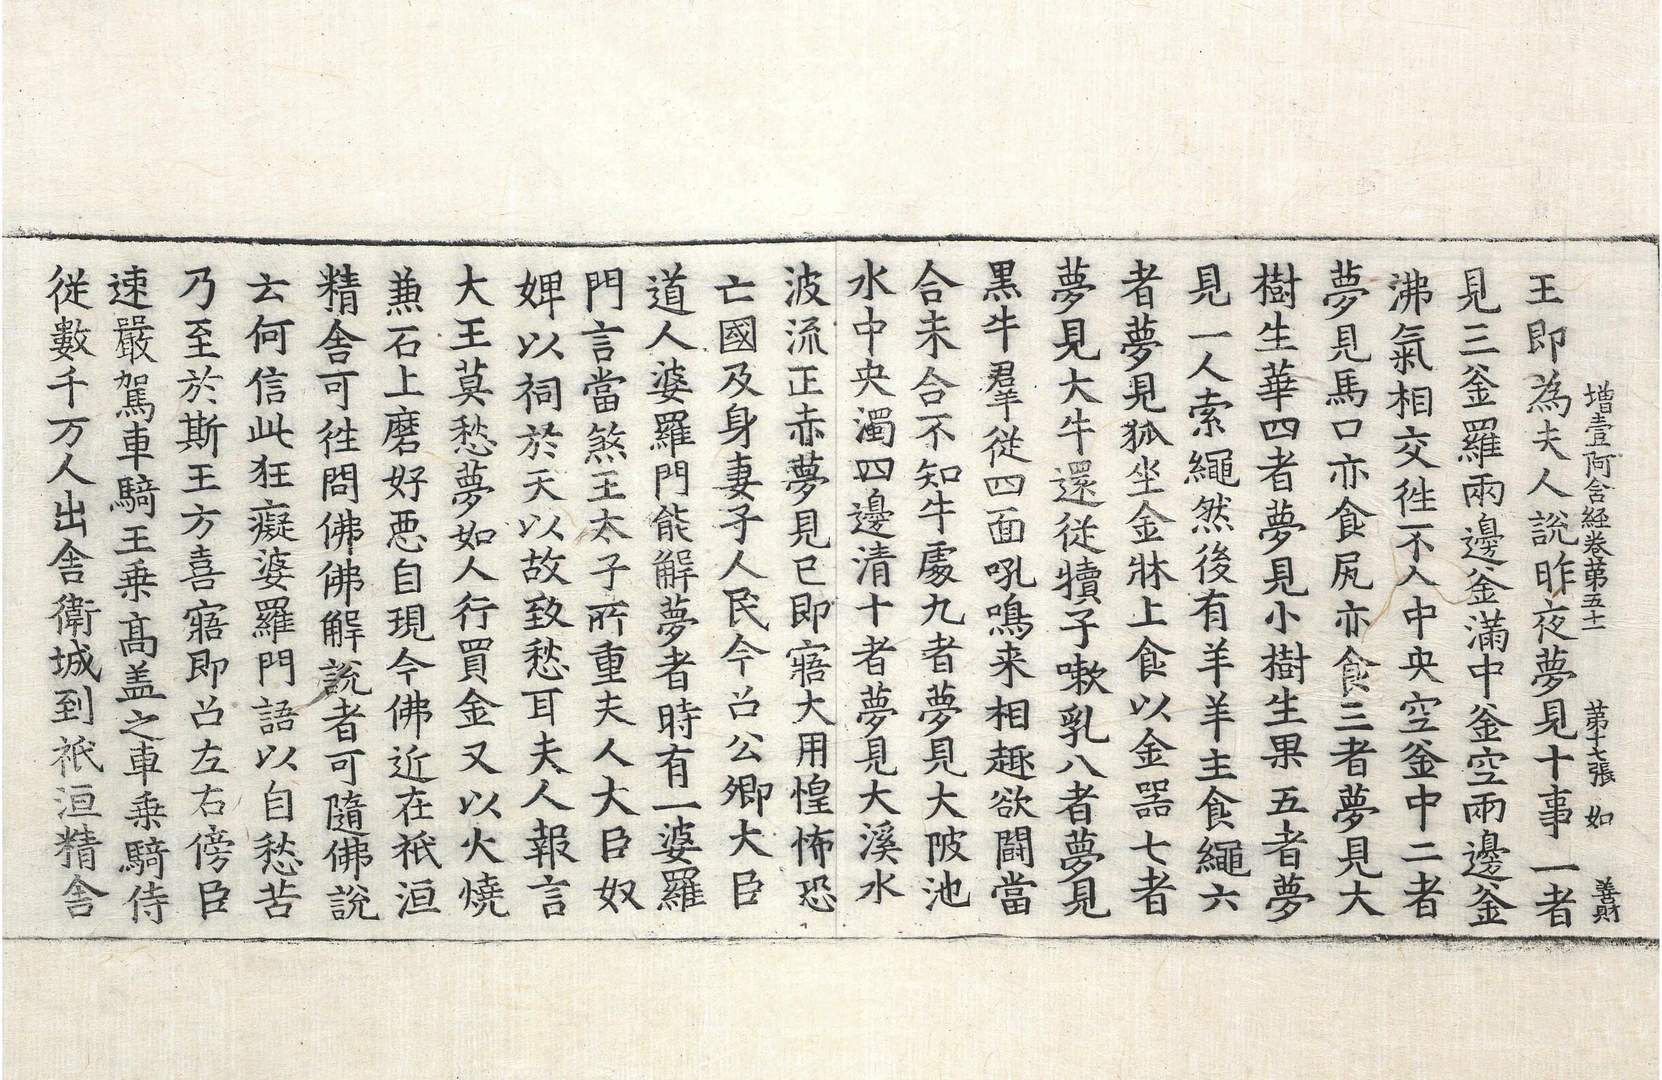 增壹阿含経卷第五十一 第十七張 如 善財
王即為夫人說昨夜夢見十事一者
見三釜羅兩邊釜滿中釜空兩邊釜
沸氣相交徃不入中央空釜中二者
夢見馬口亦食尻亦食三者夢見大
樹生華四者夢見小樹生果五者夢
見一人索繩然後有羊羊主食繩六
者夢見狐坐金牀上食以金器七者
夢見大牛還従犢子嗽乳八者夢見
黒牛羣従四面吼鳴来相趣欲鬪當
合未合不知牛處九者夢見大陂池
水中央濁四邊清十者夢見大溪水
波流正赤夢見已即寤大用惶怖恐
亡國及身妻子人民今召公卿大臣
道人婆羅門能解夢者時有一婆羅
門言當煞王太子所重夫人大臣奴
婢以祠於天以故致愁耳夫人報言
大王莫愁夢如人行買金又以火燒
兼石上磨好惡自現今佛近在祇洹
精舍可徃問佛佛解說者可隨佛說
云何信此狂癡婆羅門語以自愁苦
乃至於斯王方喜寤即召左右傍臣
速嚴駕車騎王乗高盖之車乗騎侍
従數千万人出舍衛城到祇洹精舍